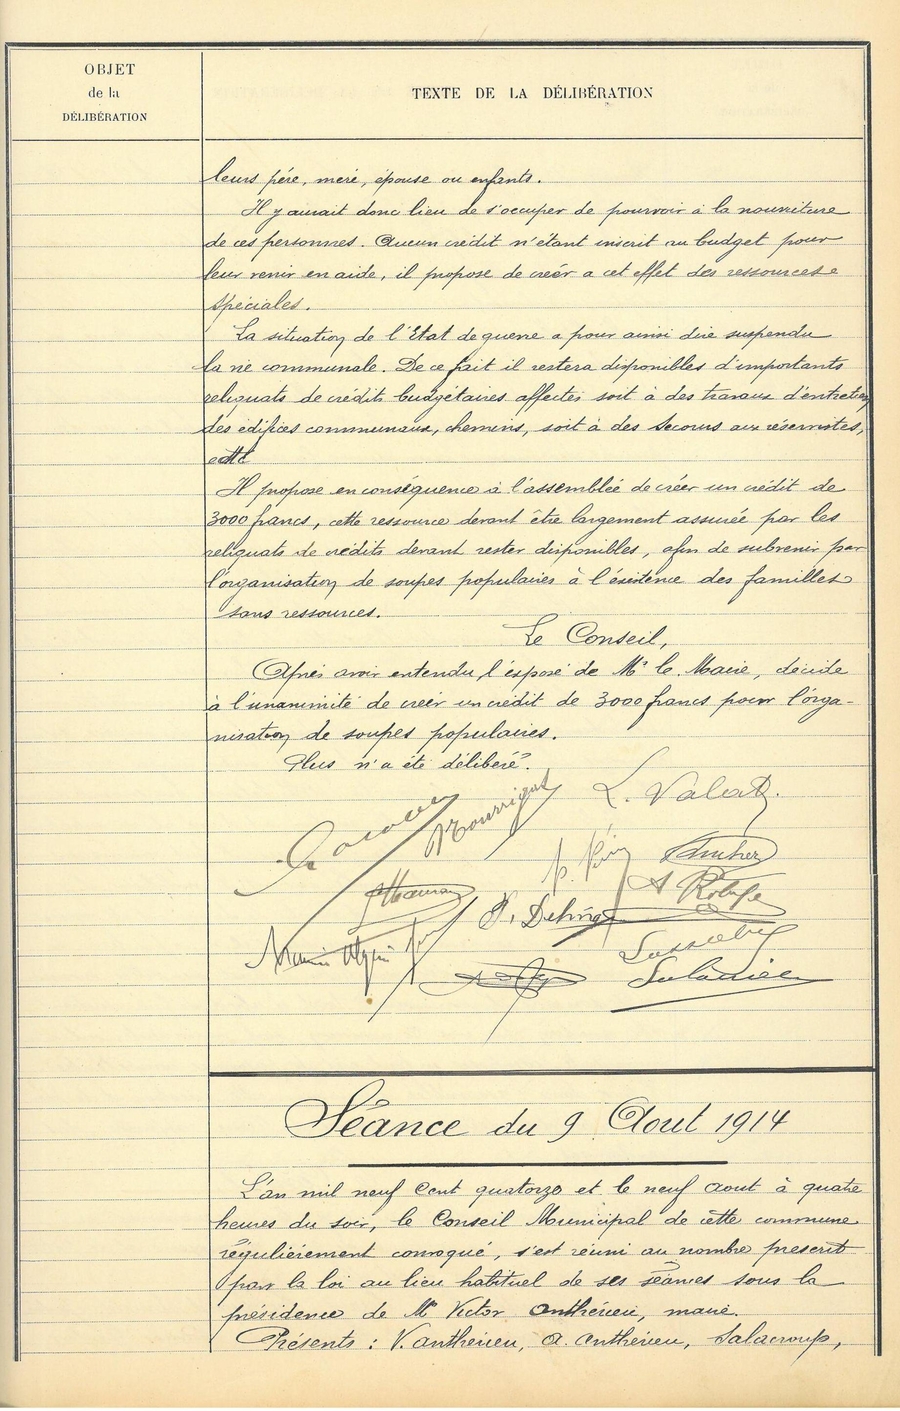 OBJET
de la
DÉLIBÉRATION
TEXTE DE LA DÉLIBÉRATION
leurs père, mère, épouse ou enfants.
Il y aurait donc lieu de s'occuper de pourvoir à la nourriture
de ces personnes. Aucun crédit n'étant inscrit au budget pour
leur venir en aide, il propose de créér a cet effet des ressources
spéciales.
La situation de l'Etat de guerre a pour ainsi dire suspendu
la vie communale. De ce fait il restera disponibles d'importants
reliquats de crédits budgétaires affectés soit à des travaux d'entretien
des édifices communaux, chemins, soit à des Secours aux réservistes,
Il propose en conséquence à l'assemblée de créer un crédit de
3000 francs, cette ressource devant être largement assurée par les
reliquats de crédits devant rester disponibles, afin de subvenir par
l'organisation de soupes populaires à l'éxistence des familles
sans ressources.
Le Conseil,
Après avoir entendu l'exposé de Mr le Maire, décide
à l'unanimité de créer un crédit de 3000 francs pour l'orga-
nisation de soupes populaires.
Plus n'a été délibéré.
L. Valat
Séance du 9 Aout 1914
L'an mil neuf Cent quatorze et le neuf aout à quatre
heures du soir, le Conseil Municipal de cette commune
régulièrement convoqué, s'est réuni au nombre prescrit
par la loi au lieu habituel de ses séances sous la
présidence de Mr Victor Anthérieu, maire.
Présents : V. Anthérieu, A. Anthérieu, Salacroup,